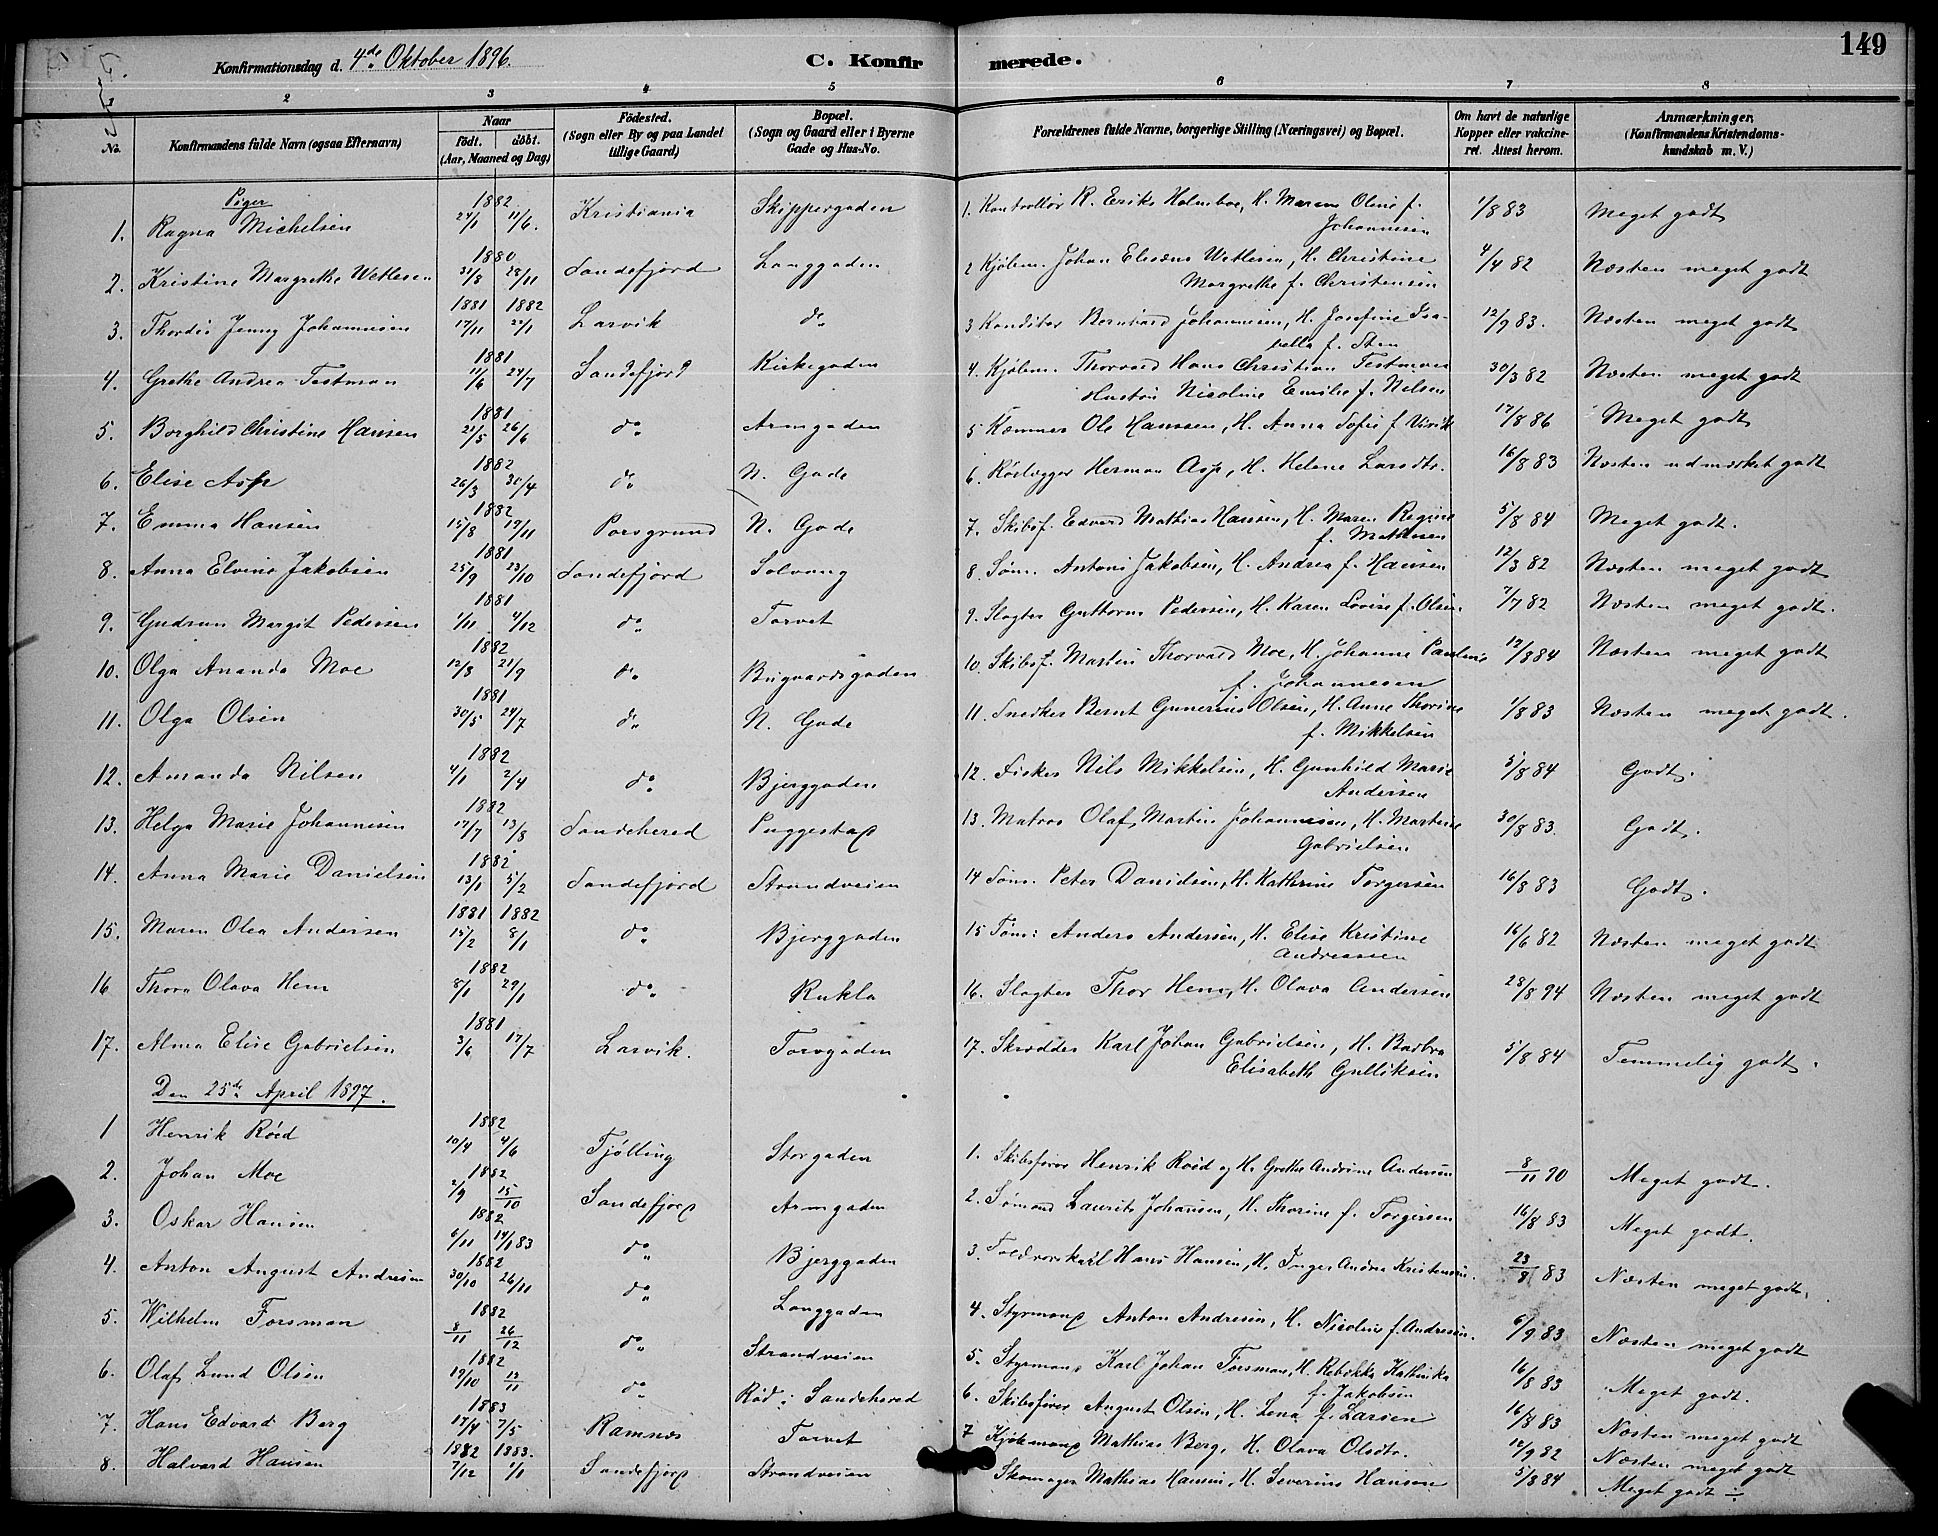 149
Konfirmationsdag d. 4de Oktober 1896.
C. Konfirmerede.
1 2 3 4 5 6 7 8
No.
Konfirmandens fulde Navn (ogsaa Efternavn)
Naar
født. døbt.
(Aar, Maaned og Dag)
Fødested.
(Sogn eller By og paa Landet tillige Gaard)
Bopæl.
(Sogn og Gaard eller i Byerne Gade og Hus-No.
Forældrenes fulde Navne, borgerlige Stilling (Næringsvei) og Bopæl.
Om havt de naturlige Kopper eller vakcineret. Attest herom.
Anmærkninger.
(Konfirmandens Kristendomskundskab m. V.)
Piger
1. Ragna Michelsen 1882 24/1 11/6. Kristiania Skippergaden 1. Kontrollør R. Eriks Holmboe, H. Maren Oline f. Johannesen 1/8 83 Meget godt
2. Kristine Margrethe Wetlesen 1880 31/8 28/11 Sandefjord Langgaden 2 Kjøbm. Johan Elesæus Wetlesen, H. Christine Margrethe f. Christensen 4/4 82 Næsten meget godt
3. Thordis Jenny Johannesen 1881 17/11 1882 22/1 Larvik do 3 Konditor Bernhard Johannesen, H. Josefine Isabella f. Sten 12/9 83. Næsten meget godt
4. Grethe Andrea Testman 1881 11/6 24/7 Sandefjord Kirkegaden 4. Kjøbm. Thorvald Hans Christian Testman Hustru Nicoline Emilie f. Nilsen 30/3 82 Næsten meget godt
5. Borghild Christine Hansen 1881 21/5 26/6 do Armgaden 5 Kæmner Ole Hanssen, H. Anna Sofie f. Virik 17/8 86 Meget godt
6. Elise Asp 1882 26/3 30/4 do N. Gade 6. Rørlægger Herman Asp, H. Helene Larsdtr. 16/8 83 Næsten udmærket godt
7. Emma Hansen 1882 15/8 19/11 Porsgrund N. Gade 7. Skibsf. Edvard Mathias Hansen, H. Maren Regine f. Mathisen 5/8 84 Meget godt.
8. Anna Elvine Jakobsen 1881 25/9 23/10 Sandefjord Solvang 8. Søm. Antoni Jakobsen, H. Andrea f. Hansen 12/3 82 Næsten meget godt
9. Gudrun Margit Pedersen 1881 1/11 4/12 do Torvet 9. Slagter Guttorm Pedersen, H. Karen Lovise f. Olsen 7/7 82 Næsten meget godt.
10. Olga Ananda Moe 1882 12/8 21/9 do Bugaardsgaden 10. Skibsf. Martin Thorvald Moe, H. Johanne Pauline f. Johannesen 19/8 84 Næsten meget godt
11. Olga Olsen 1881 30/5 24/7 do N. Gade 11. Snedker Bernt Gunerius Olsen, H. Anne Thorine f. Mikkelsen 1/8 83 Næsten meget godt.
12. Amanda Nilsen 1882 4/1 2/4 do Bjerggaden 12. Fisker Nils Mikkelsen, H. Gunhild Marie Andersen 5/8 84 Godt.
13. Helga Marie Johannesen 1882 17/7 13/8 Sandeherred Puggestad 13. Matros Olaf Martin Johannesen, H. Martine Gabrielsen 30/8 83. Godt.
14. Anna Marie Danielsen 1882 13/1 5/2 Sandefjord Strandveien 14 Søm. Peter Danielsen, H. Kathrine Torgersen 16/8 83 Godt.
15. Maren Olea Andersen 1881 15/2 1882 8/1 do Bjerggaden 15 Tøm: Anders Andersen, H. Elise Kristine Andreassen 16/6 82 Næsten meget godt
16 Thora Olava Hem 1882 8/1 29/1 do Rukla 16. Slagter Thor Hem, H. Olava Andersen 28/8 94 Næsten meget godt
17. Alma Elise Gabrielsen 1881 3/6 17/7 Larvik. Torvgaden 17. Skrædder Karl Johan Gabrielsen, H. Barbra Elisabeth Gulliksen 5/8 84 Temmelig godt.
Den 25de April 1897.
1 Henrik Röed 1882 10/4 4/6 Tjölling Storgaden 1. Skibsfører Henrik Roöd og H. Grethe Andrine Andersen 8/11 90 Meget godt.
2. Johan Moe 1882 2/9 15/10 Sandefjord Armgaden 2. Sømand Laurits Johansen, H. Thorine f. Torgersen 16/8 83 Meget godt.
3. Oskar Hansen 1882 6/11 14/1 83 do Bjerggaden 3. Toldrorskarl Hans Hansen, H. Inger Andrea Kristensen. 23/8 83 Næsten meget godt.
4. Anton August Andresen 1882 30/10 26/11 do Langgaden 4. Styrmand Anton Andresen, H. Nicoline f. Andresen. 6/9 83 Næsten meget godt
5. Wilhelm Forsman 1882 8/11 26/12 do Strandveien 5. Styrmand Karl Johan Forsman, H. Rebekka Kathinka f. Jakobsen 16/8 83 Meget godt.
6. Olaf Lund Olsen 1882 19/10 19/11 do Röd i Sandeherred 6. Skibsfører August Olsen, H. Lena f. Larsen 16/8 83 Næsten meget godt
7. Hans Edvard Berg 1883 17/4 7/5 Ramnes Torvet 7 Kjøbmand Mathias Berg, H. Olava Olsdtr. 12/9 82 Næsten meget godt
8. Halvard Hansen 1882 7/12 1883. 1/1 Sandefjord Strandveien Skomager Mathias Hansen, H. Severine Hansen 5/8 84 Meget godt ÷